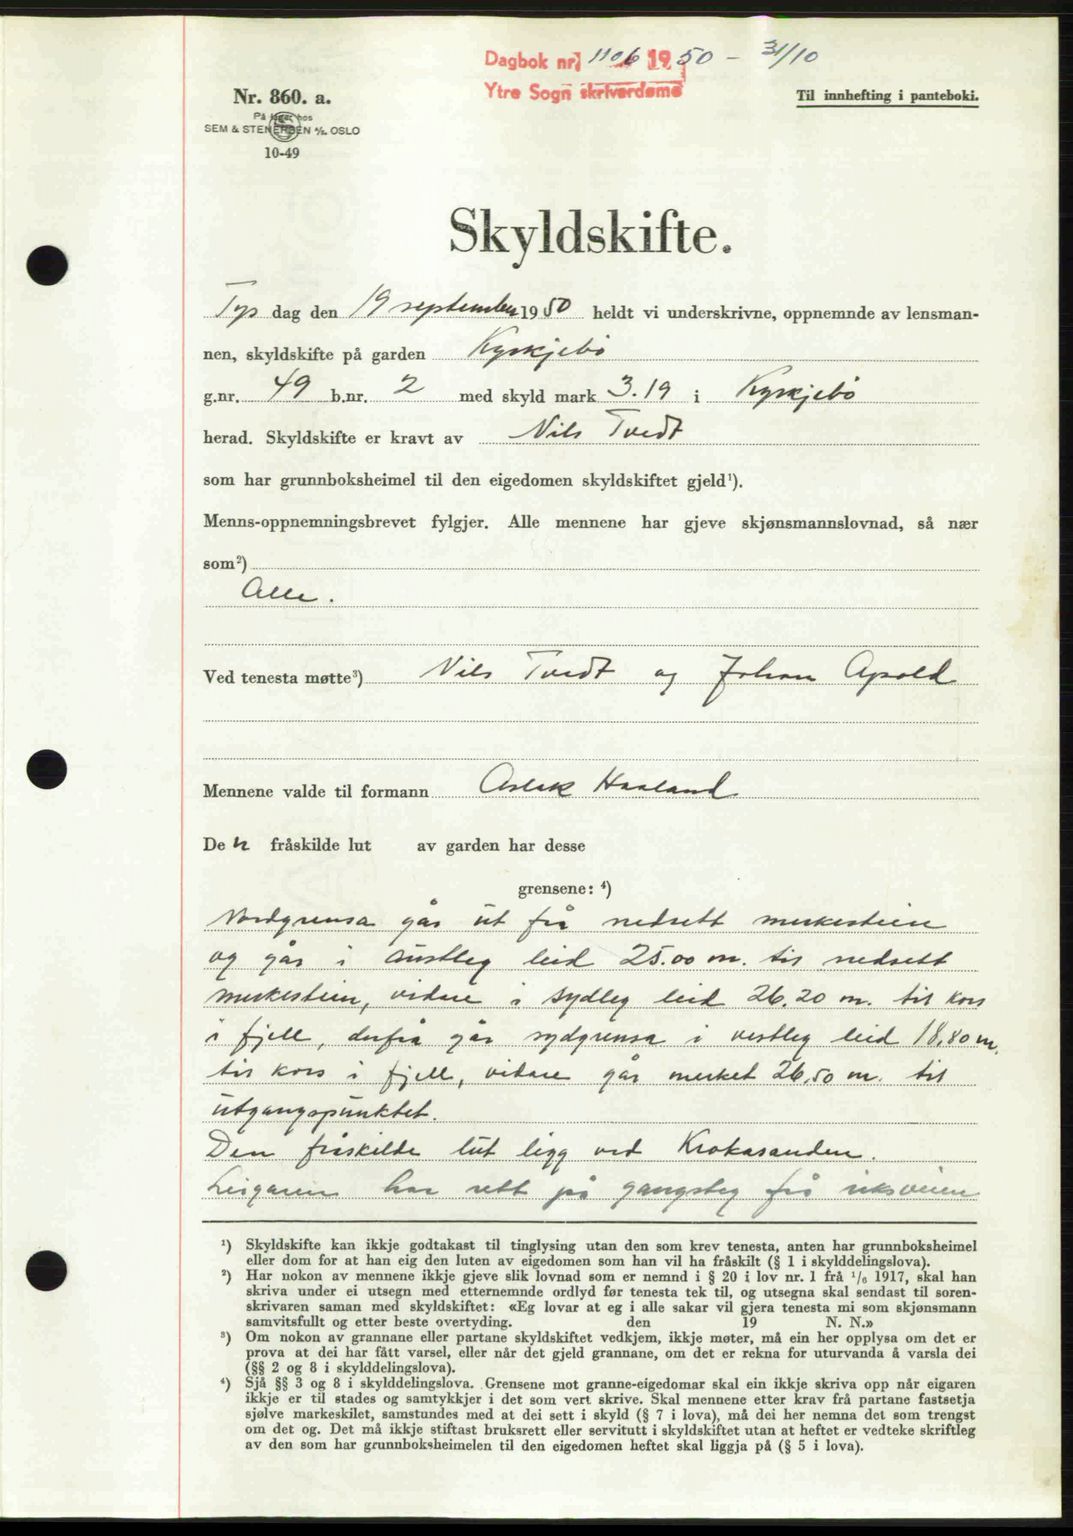 Dagbok nr. 1106 1950 - 31/10
Ytre Sogn skriverdøme
Nr. 860. a.
På lager hos
SEM & STENERSEN A/S. OSLO
10-49
Til innhefting i panteboki.
Skyldskifte.
Tys dag den 19 september 1950 heldt vi underskrivne, oppnemnde av lensman-
nen, skyldskifte på garden Kyrkjebö
g.nr. 49 b.nr. 2 med skyld mark 3.19 i Kyrkjebö
herad. Skyldskifte er kravt av Nils Tvedt
som har grunnboksheimel til den eigedomen skyldskiftet gjeld¹).
Menns-oppnemningsbrevet fylgjer. Alle mennene har gjeve skjønsmannslovnad, så nær
som²)
Alle.
Ved tenesta møtte³) Nils Tvedt og Johan Apold
Mennene valde til formann Aslak Haaland
De n fråskilde lut av garden har desse
grensene: ⁴)
Nordgrensa går ut frå nedsett merkestein
og går i austleg leid 25.00 m. til nedsett
merkestein, vidare i sydleg leid 26.20 m. til kors
i fjell, derfrå går sydgrensa i vestleg leid 18,80 m.
til kors i fjell, vidare går merket 26,50 m. til
utgangspunktet.
Den fråskilde lut ligg ved Krokasanden.
Leigaren har rett på gangsteg frå riksveien
¹) Skyldskifte kan ikkje godtakast til tinglysing utan den som krev tenesta, anten har grunnboksheimel
eller dom for at han eig den luten av eigedomen som han vil ha fråskilt (§ 1 i skylddelingslova).
²) Har nokon av mennene ikkje gjeve slik lovnad som er nemnd i § 20 i lov nr. 1 frå 1/6 1917, skal han
skriva under ei utsegn med etternemnde ordlyd før tenesta tek til, og utsegna skal sendast til soren-
skrivaren saman med skyldskiftet: «Eg lovar at eg i alle sakar vil gjera tenesta mi som skjønsmann
samvitsfullt og etter beste overtyding. den 19 N. N.»
³) Om nokon av grannane eller partane skyldskiftet vedkjem, ikkje møter, må ein her opplysa om det er
prova at dei har fått varsel, eller når det gjeld grannane, om det er rekna for uturvanda å varsla dei
(§§ 2 og 8 i skylddelingslova).
⁴) Sjå §§ 3 og 8 i skylddelingslova. Grensene mot granne-eigedomar skal ein ikkje skriva opp når eigaren
ikkje er til stades og samtykkjer i det som vert skrive. Skal mennene etter krav frå partane fastsetja
sjølve markeskilet, samstundes med at dei sett i skyld (§ 7 i lova), må dei her nemna det som trengst
om det og. Det må ikkje stiftast bruksrett eller servitutt i skyldskiftet utan at heftet er vedteke skriftleg
av den som har grunnboksheimelen til den eigedomen heftet skal liggja på (§ 5 i lova).